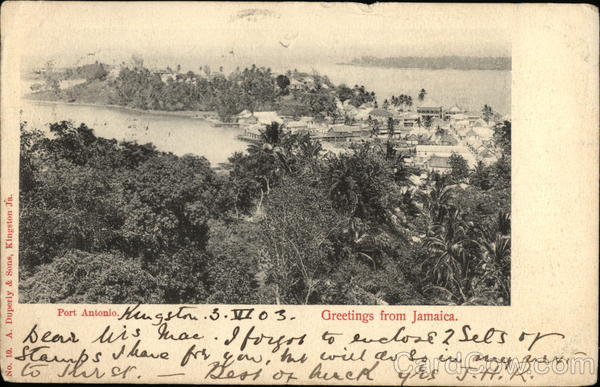 No. 10. A. Duperly & Sons, Kingston Ja.
Port Antonio. Kingston 3.VI 03.
Greetings from Jamaica.
Dear Mrs Mac. I forgot to enclose? Sets of
Stamps I have for you, but will do so in my next
to hurst. — Best of luck yrs
CardCow.com